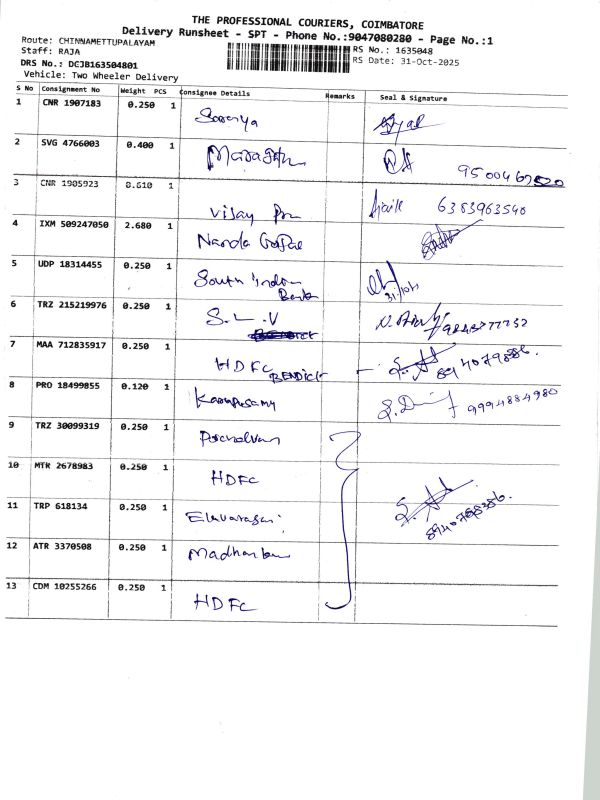 THE PROFESSIONAL COURIERS, COIMBATORE
Delivery Runsheet - SPT - Phone No.:9047080280 - Page No.:1
Route: CHINNAMETTUPALAYAM
RS No.: 1635048
Staff: RAJA
RS Date: 31-Oct-2025
DRS No.: DCJB163504801
Vehicle: Two Wheeler Delivery
S No Consignment No Weight PCS Consignee Details Remarks Seal & Signature
1 CNR 1907183 0.250 1
2 SVG 4766003 0.400 1
3 CNR 1905923 0.610 1 Vijay 6383963540
4 IXM 509247050 2.680 1 Nanda
5 UDP 18314455 0.250 1 South Indian
Bank 31/10/
6 TRZ 215219976 0.250 1 S.L.V
7 MAA 712835917 0.250 1 HDFC
8 PRO 18499855 0.120 1 Karuppusamy 9994884980
9 TRZ 30099319 0.250 1
10 MTR 2678983 0.250 1 HDFC
11 TRP 618134 0.250 1
12 ATR 3370508 0.250 1
13 CDM 10255266 0.250 1 HDFC